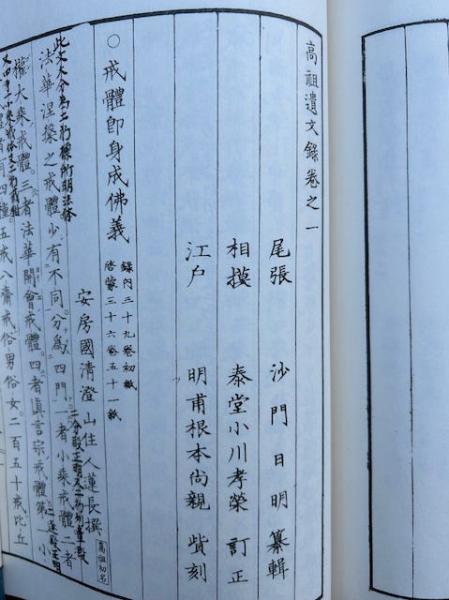 高祖遺文錄卷之一
尾張　沙門日明　纂輯
相摸　泰堂小川孝榮　訂正
江戶　明甫根本尚親　貲刻
○戒體即身成佛義
錄內三十九卷初紙
啓蒙三十六卷五十一紙
安房國清澄山住人蓮長撰
高祖初名
法華涅槃之戒體少有不同分爲四門一者小乘戒體二者
權大乘戒體三者法華開會戒體四者眞言宗戒體第一小
五戒八齋戒俗男俗女二百五十戒比丘